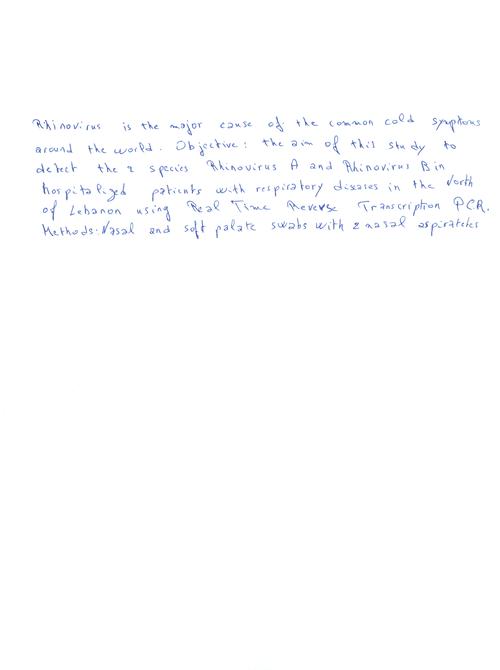 Rhinovirus is the major cause of the common cold symptoms
around the world. Objective: the aim of this study to
detect the 2 species Rhinovirus A and Rhinovirus B in
hospitalized patients with respiratory diseases in the North
of Lebanon using Real Time Reverse Transcription PCR.
Methods: Nasal and soft palate swabs with 2 nasal aspirates